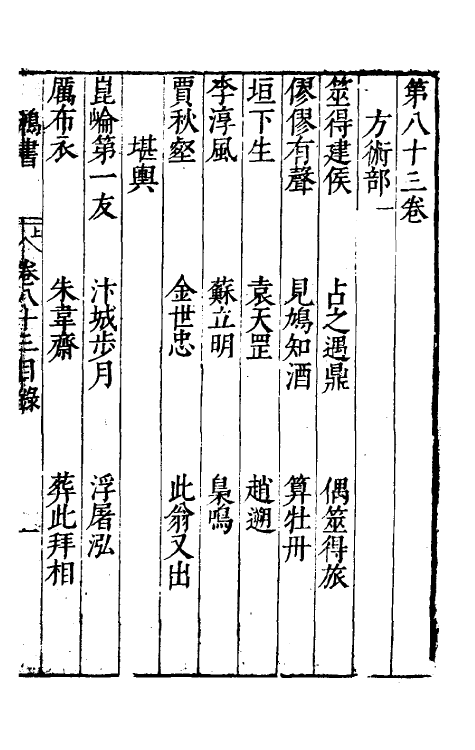 第八十三卷
方術部一
筮得建侯　占之遇鼎　偶筮得旅
僇僇有聲　見鳩知酒　算牡丹
垣下生　袁天罡　趙遡
李淳風　蘇立明　梟鳴
賈秋壑　金世忠　此翁又出
堪輿
崑崘第一友　汴城步月　浮屠泓
厲布衣　朱韋齋　葬此拜相
鴻書　卷八十三目錄　一